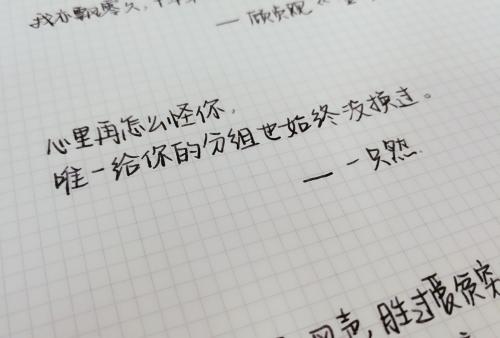 我亦飘零久,十年
— 顾贞观《金
心里再怎么怪你,
唯一给你的分组也始终没换过。
— 一只然.
风声,胜过爱负实